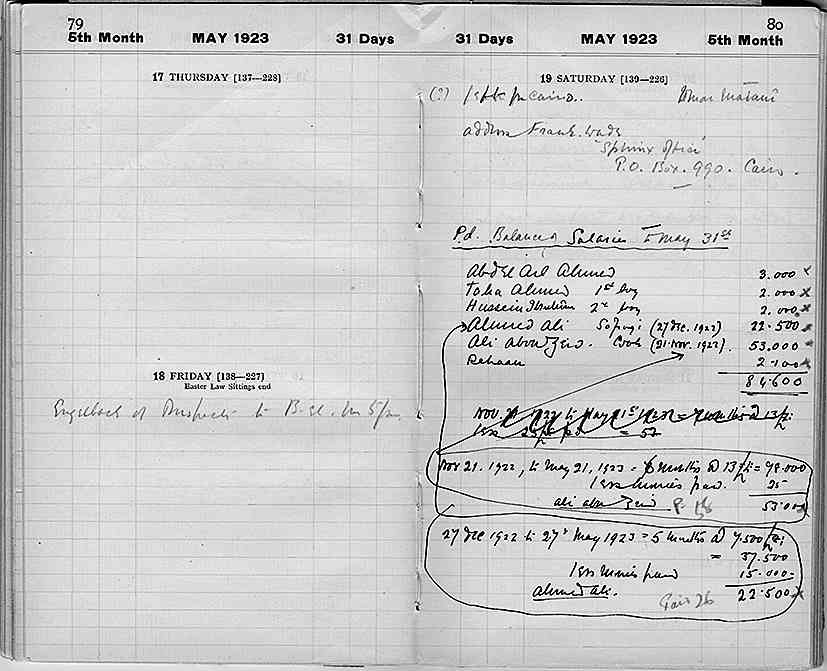 79
5th Month MAY 1923 31 Days
17 THURSDAY [137—228]
18 FRIDAY [138—227]
Easter Law Sittings end
Engelbach of to B. el. M 5 p.m.
80
31 Days MAY 1923 5th Month
19 SATURDAY [139—226]
(?) left for Cairo.. Omar
address Frank. Wade
"Sphinx Office"
P.O. Box. 990. Cairo.
Pd. Balance of Salaries to May 31st
Abd El Aal Ahmed 3.000 x
Taha Ahmed 1st boy 2.000 x
Hussein Ibrahim 2nd boy 2.000 x
Ahmed Ali Sofragi (27 Dec. 1922) 22.500 x
Ali abou Zeid. Cook (21 Nov. 1922). 53.000 x
Rehaan 2.100 x
84.600
Nov. 21 1922 to May
less pd = 53
Nov 21. 1922, to May 21, 1923 = 6 months @ 13 = 78.000
less monies paid. 25
Ali abu Zeid 53.000
27 Dec 1922 to 27th May 1923 = 5 months @ 7.500
= 37.500
less monies paid 15.000
Ahmed Ali. 22.500 x